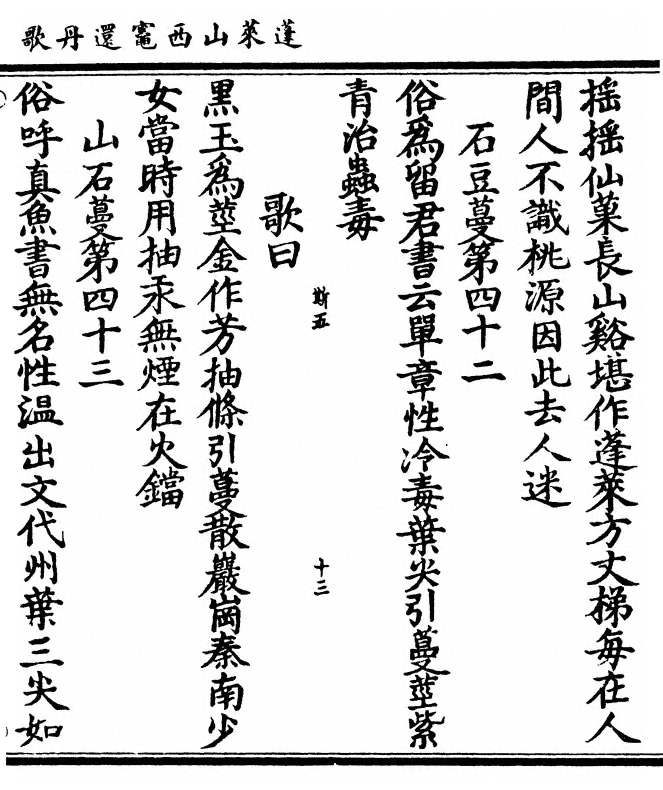 蓬萊山西竈還丹歌
搖搖仙菓長山谿堪作蓬萊方丈梯每在人
間人不識桃源因此去人迷
石豆蔓第四十二
俗爲留君書云單章性冷毒葉尖引蔓莖紫
青治蟲毒
斯五
十三
歌曰
黑玉爲莖金作芳抽條引蔓散巖崗秦南少
女當時用抽汞無煙在火鐺
山石蔓第四十三
俗呼真魚書無名性溫出文代州葉三尖如